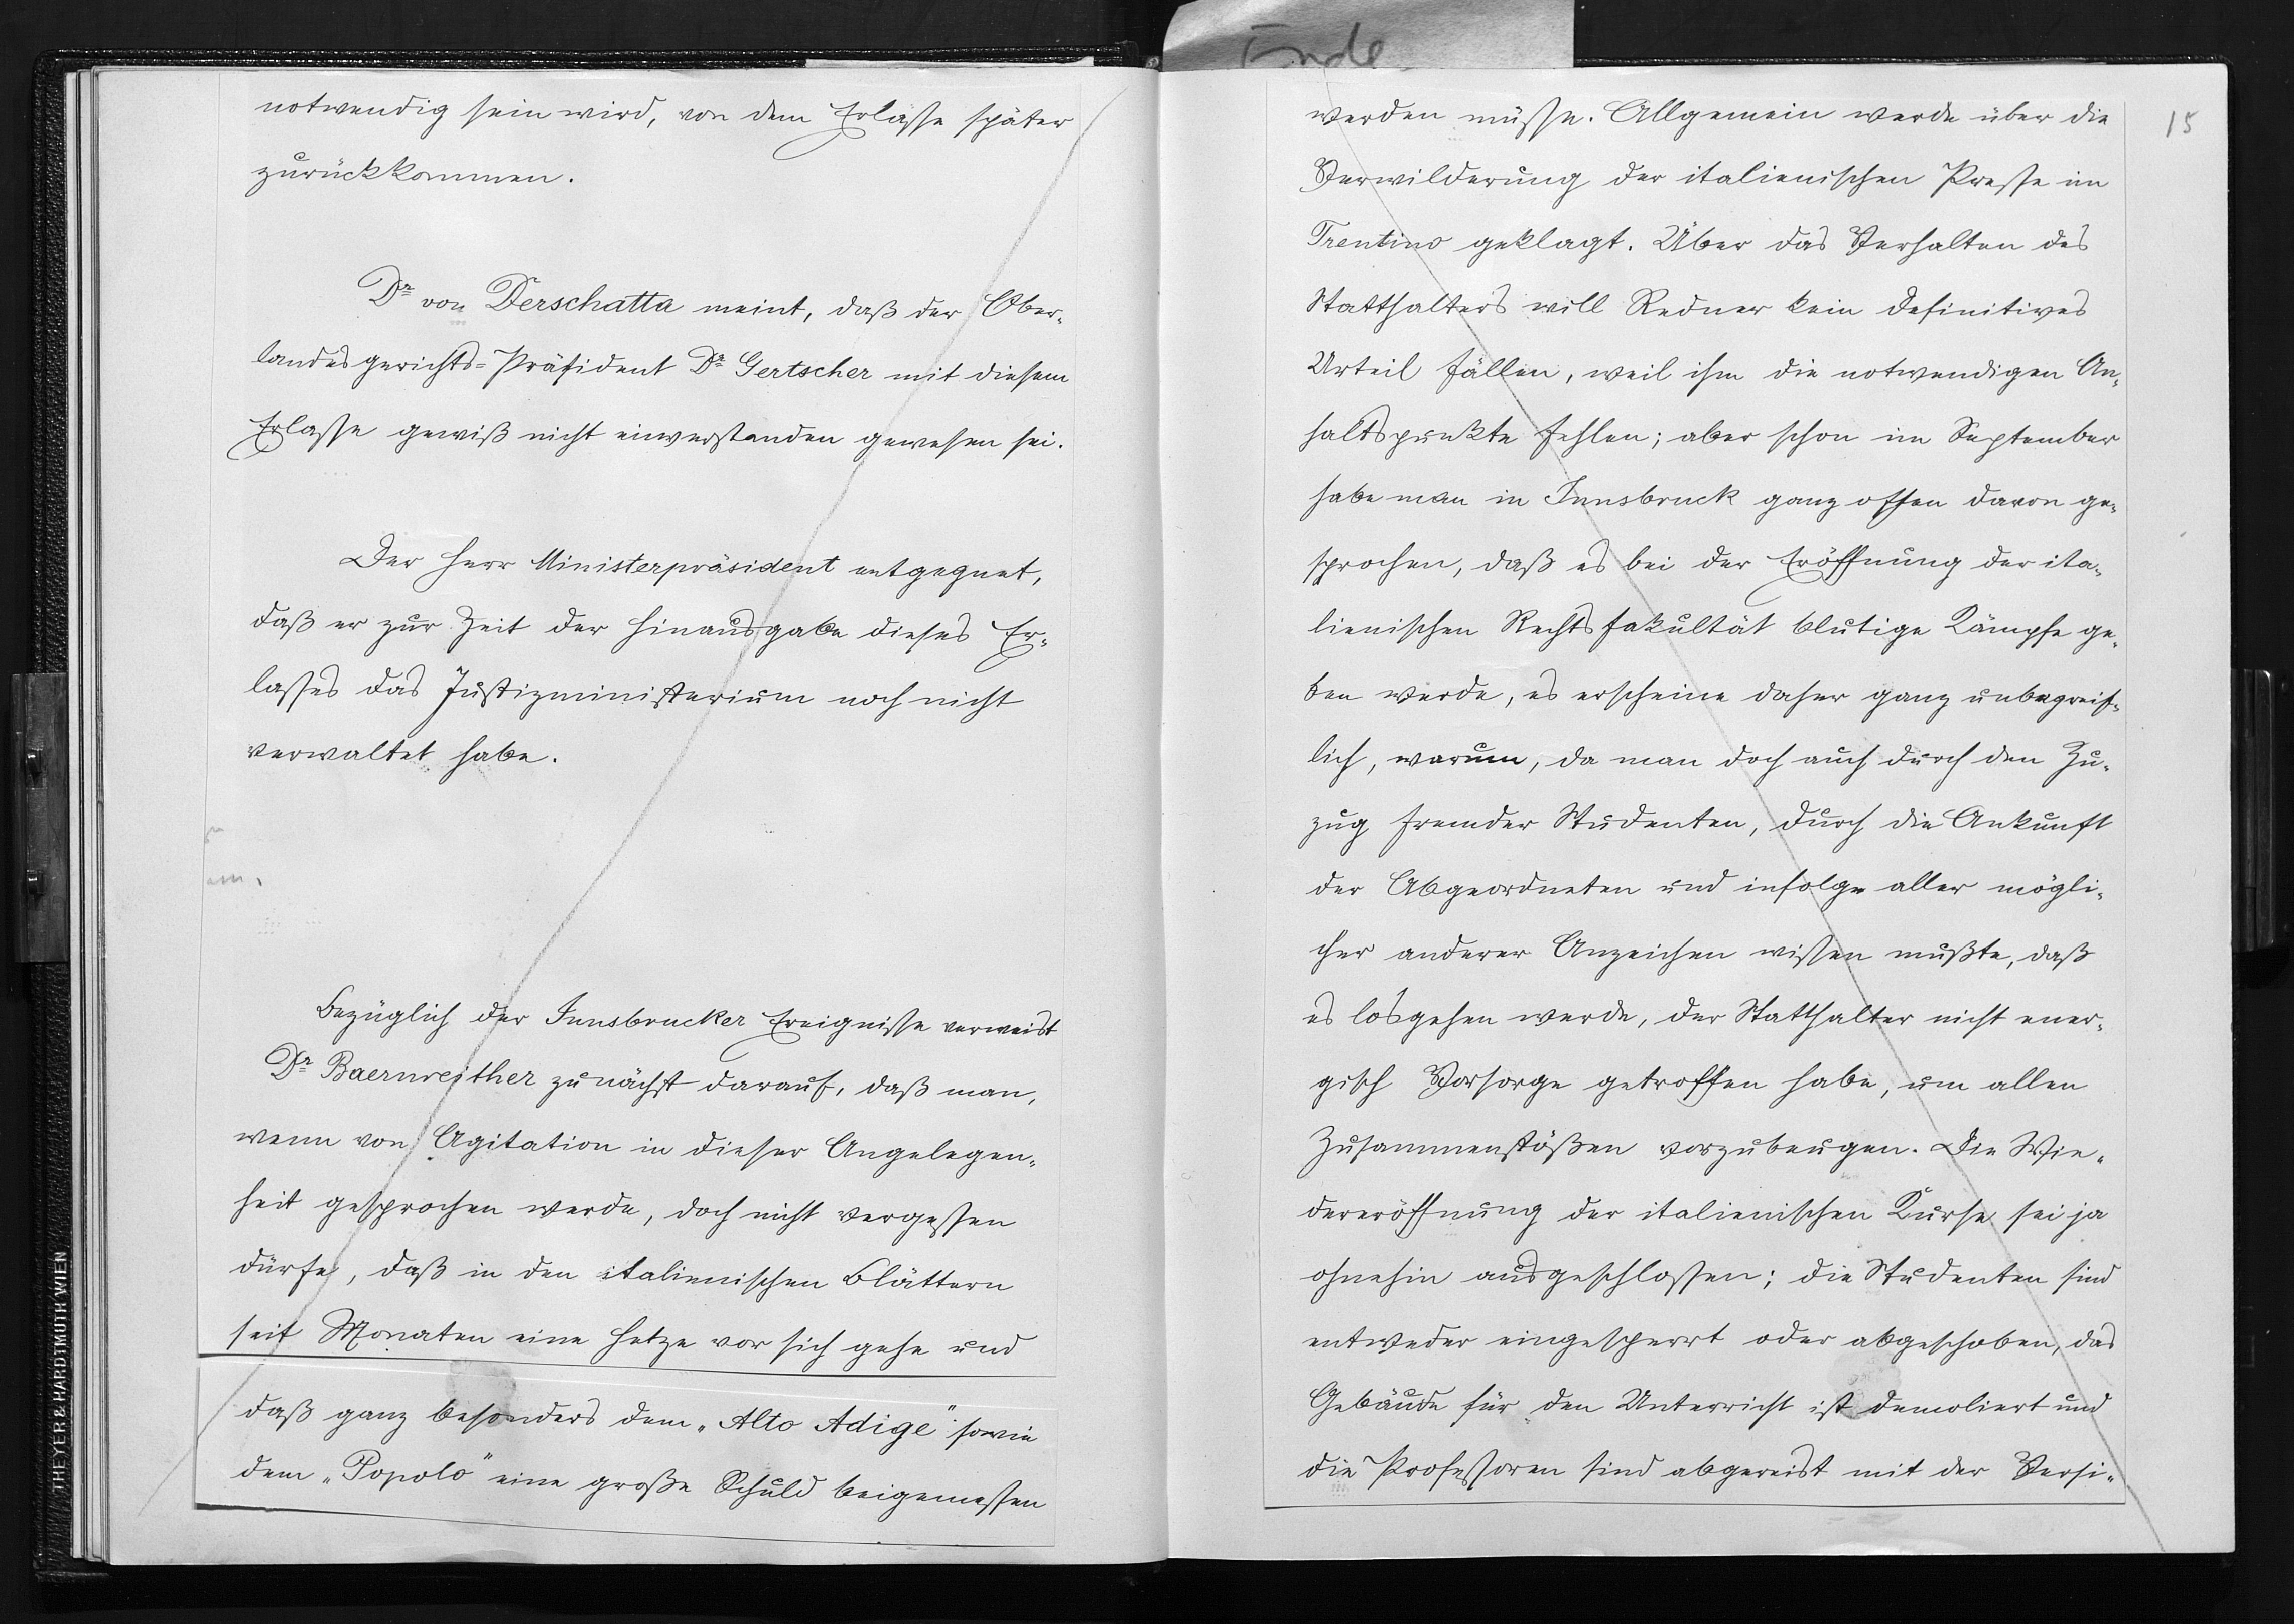 notwendig sein wird, von dem Erlasse später
zurückkommen.
Dr von Derschatta meint, daß der Ober-
landesgerichts-Präsident Dr Gertscher mit diesem
Erlasse gewiß nicht einverstanden gewesen sei.
Der Herr Ministerpräsident entgegnet,
daß er zur Zeit der Hinausgabe dieses Er-
lasses das Justizministerium noch nicht
verwaltet habe.
Bezüglich der Innsbrucker Ereignisse verweist
Dr Baernreither zunächst darauf, daß man,
wenn von Agitation in dieser Angelegen-
heit gesprochen werde, doch nicht vergessen
dürfe, daß in den italienischen Blättern
seit Monaten eine Hetze vor sich gehe und
daß ganz besonders dem „Alto Adige" sowie
dem „Popolo" eine große Schuld beigemessen
THEYER & HARDTMUTH WIEN
Ende
15
werden müsse. Allgemein werde über die
Verwilderung der italienischen Presse im
Trentino geklagt. Über das Verhalten des
Statthalters will Redner kein definitives
Urteil fällen, weil ihm die notwendigen An-
haltspunkte fehlen; aber schon im September
habe man in Innsbruck ganz offen davon ge-
sprochen, daß es bei der Eröffnung der ita-
lienischen Rechtsfakultät blutige Kämpfe ge-
ben werde, es erscheine daher ganz unbegreif-
lich, warum, da man doch auch durch den Zu-
zug fremder Studenten, durch die Ankunft
der Abgeordneten und infolge aller mögli-
cher anderer Anzeichen wissen mußte, daß
es losgehen werde, der Statthalter nicht ener-
gisch Vorsorge getroffen habe, um allen
Zusammenstößen vorzubeugen. Die Wie-
dereröffnung der italienischen Kurse sei ja
ohnehin ausgeschlossen; die Studenten sind
entweder eingesperrt oder abgeschoben, das
Gebäude für den Unterricht ist demoliert und
die Professoren sind abgereist mit der Versi-